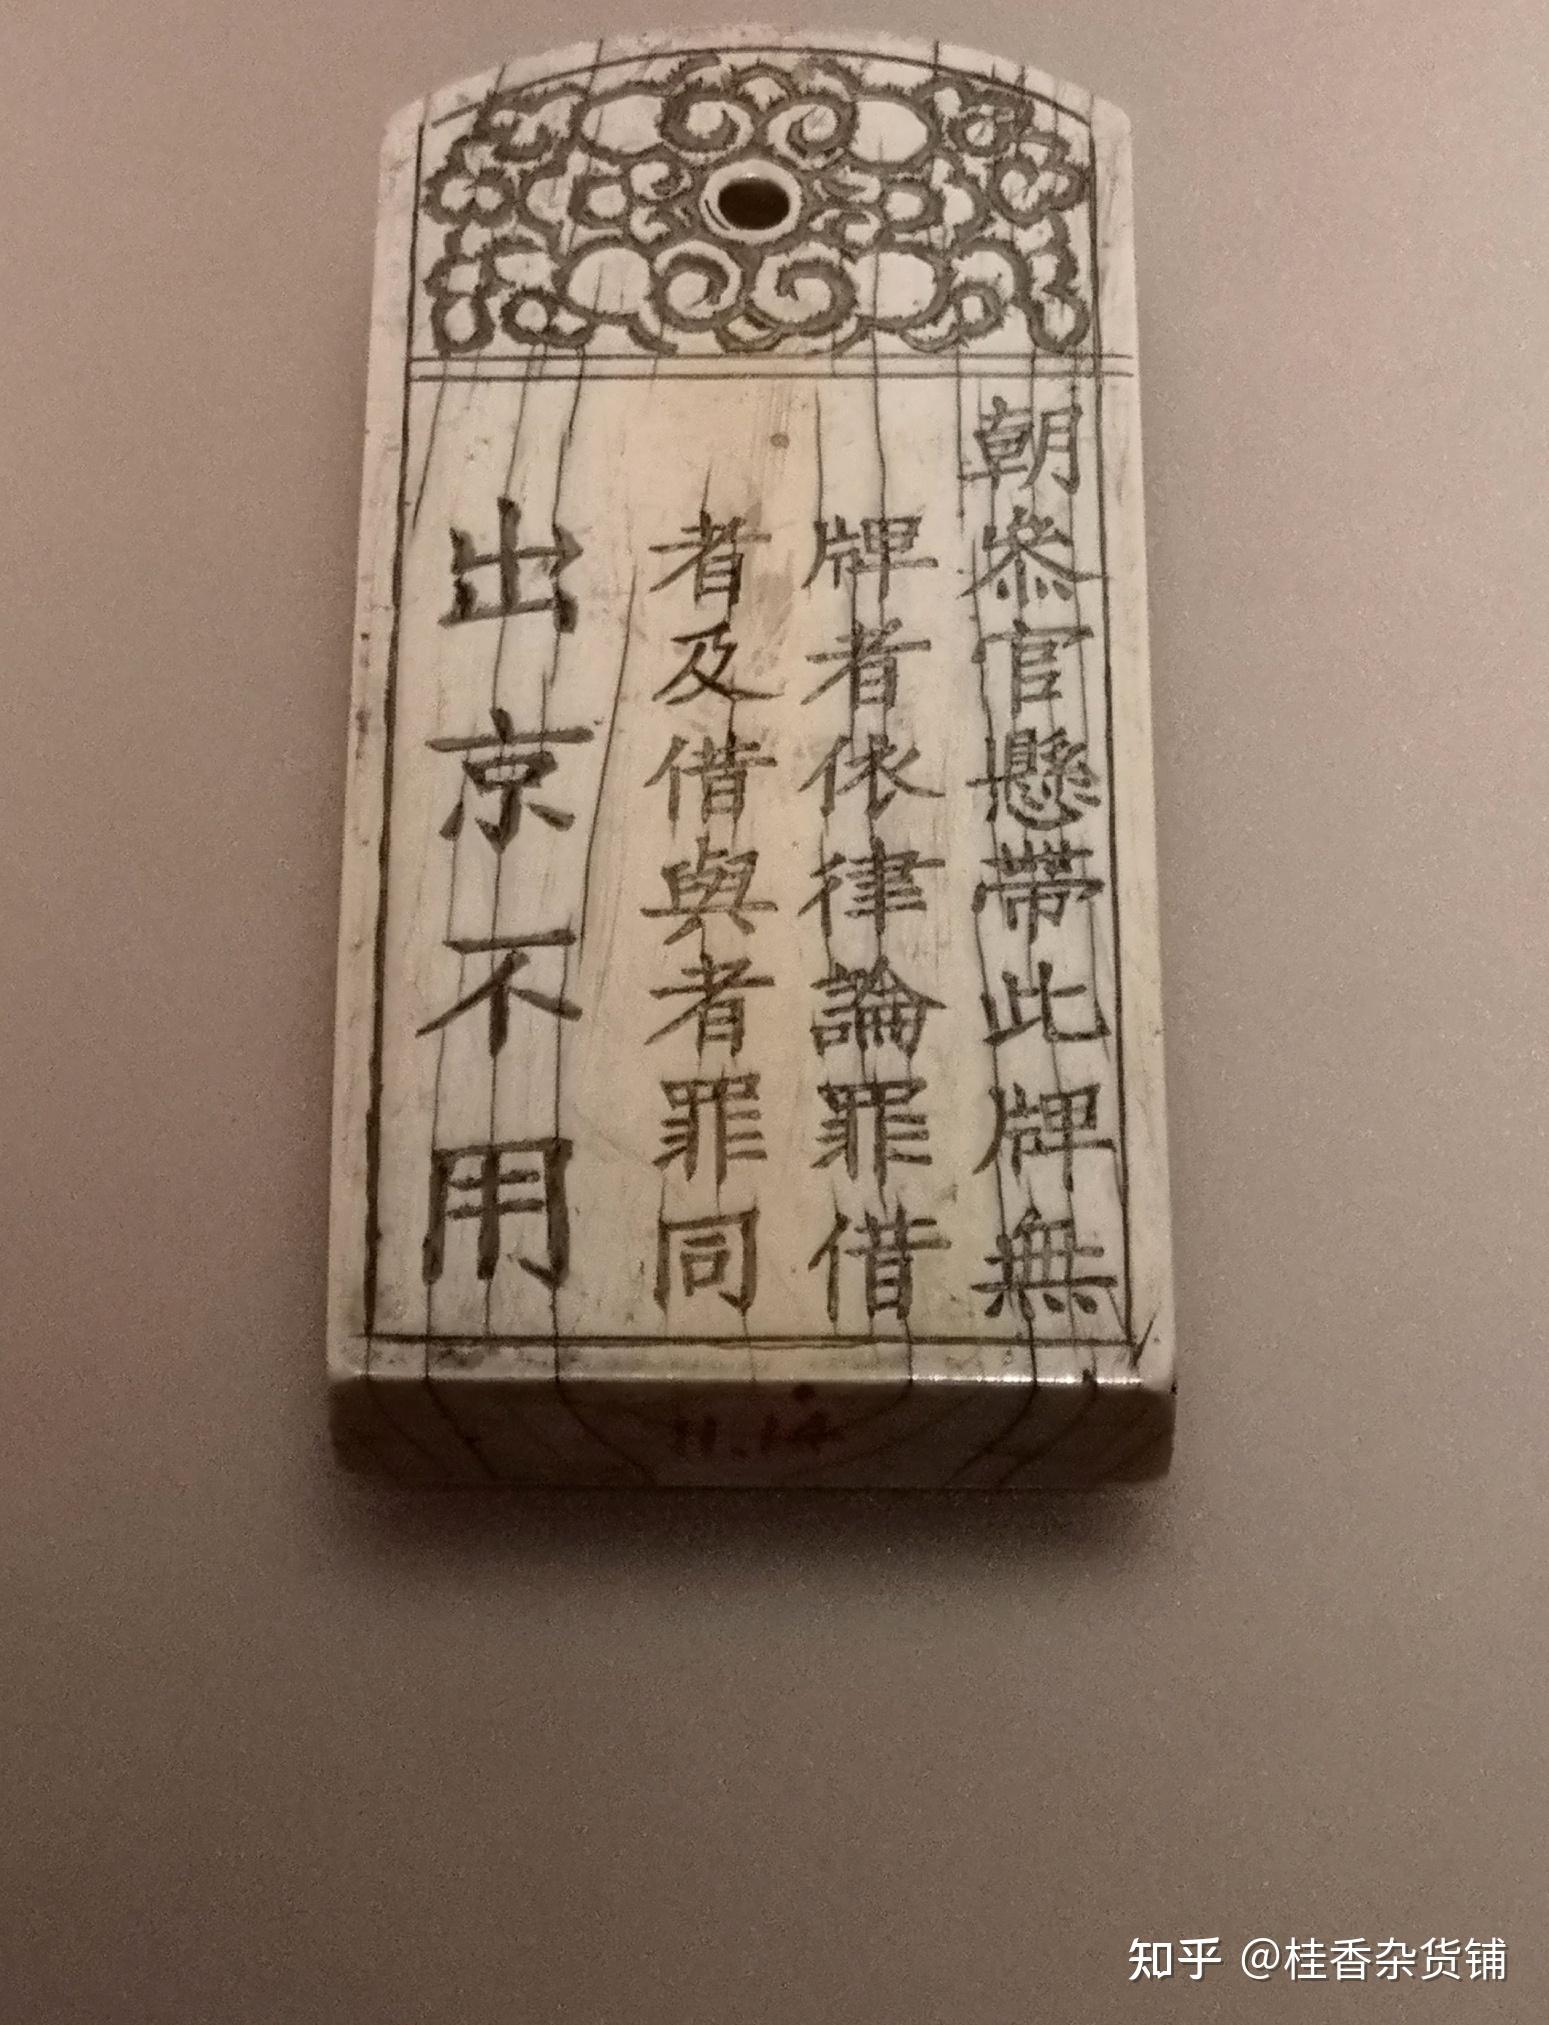 朝叅官懸帶此牌無
牌者依律論罪借
者及借與者罪同
出京不用
11.14
知乎 @桂香杂货铺